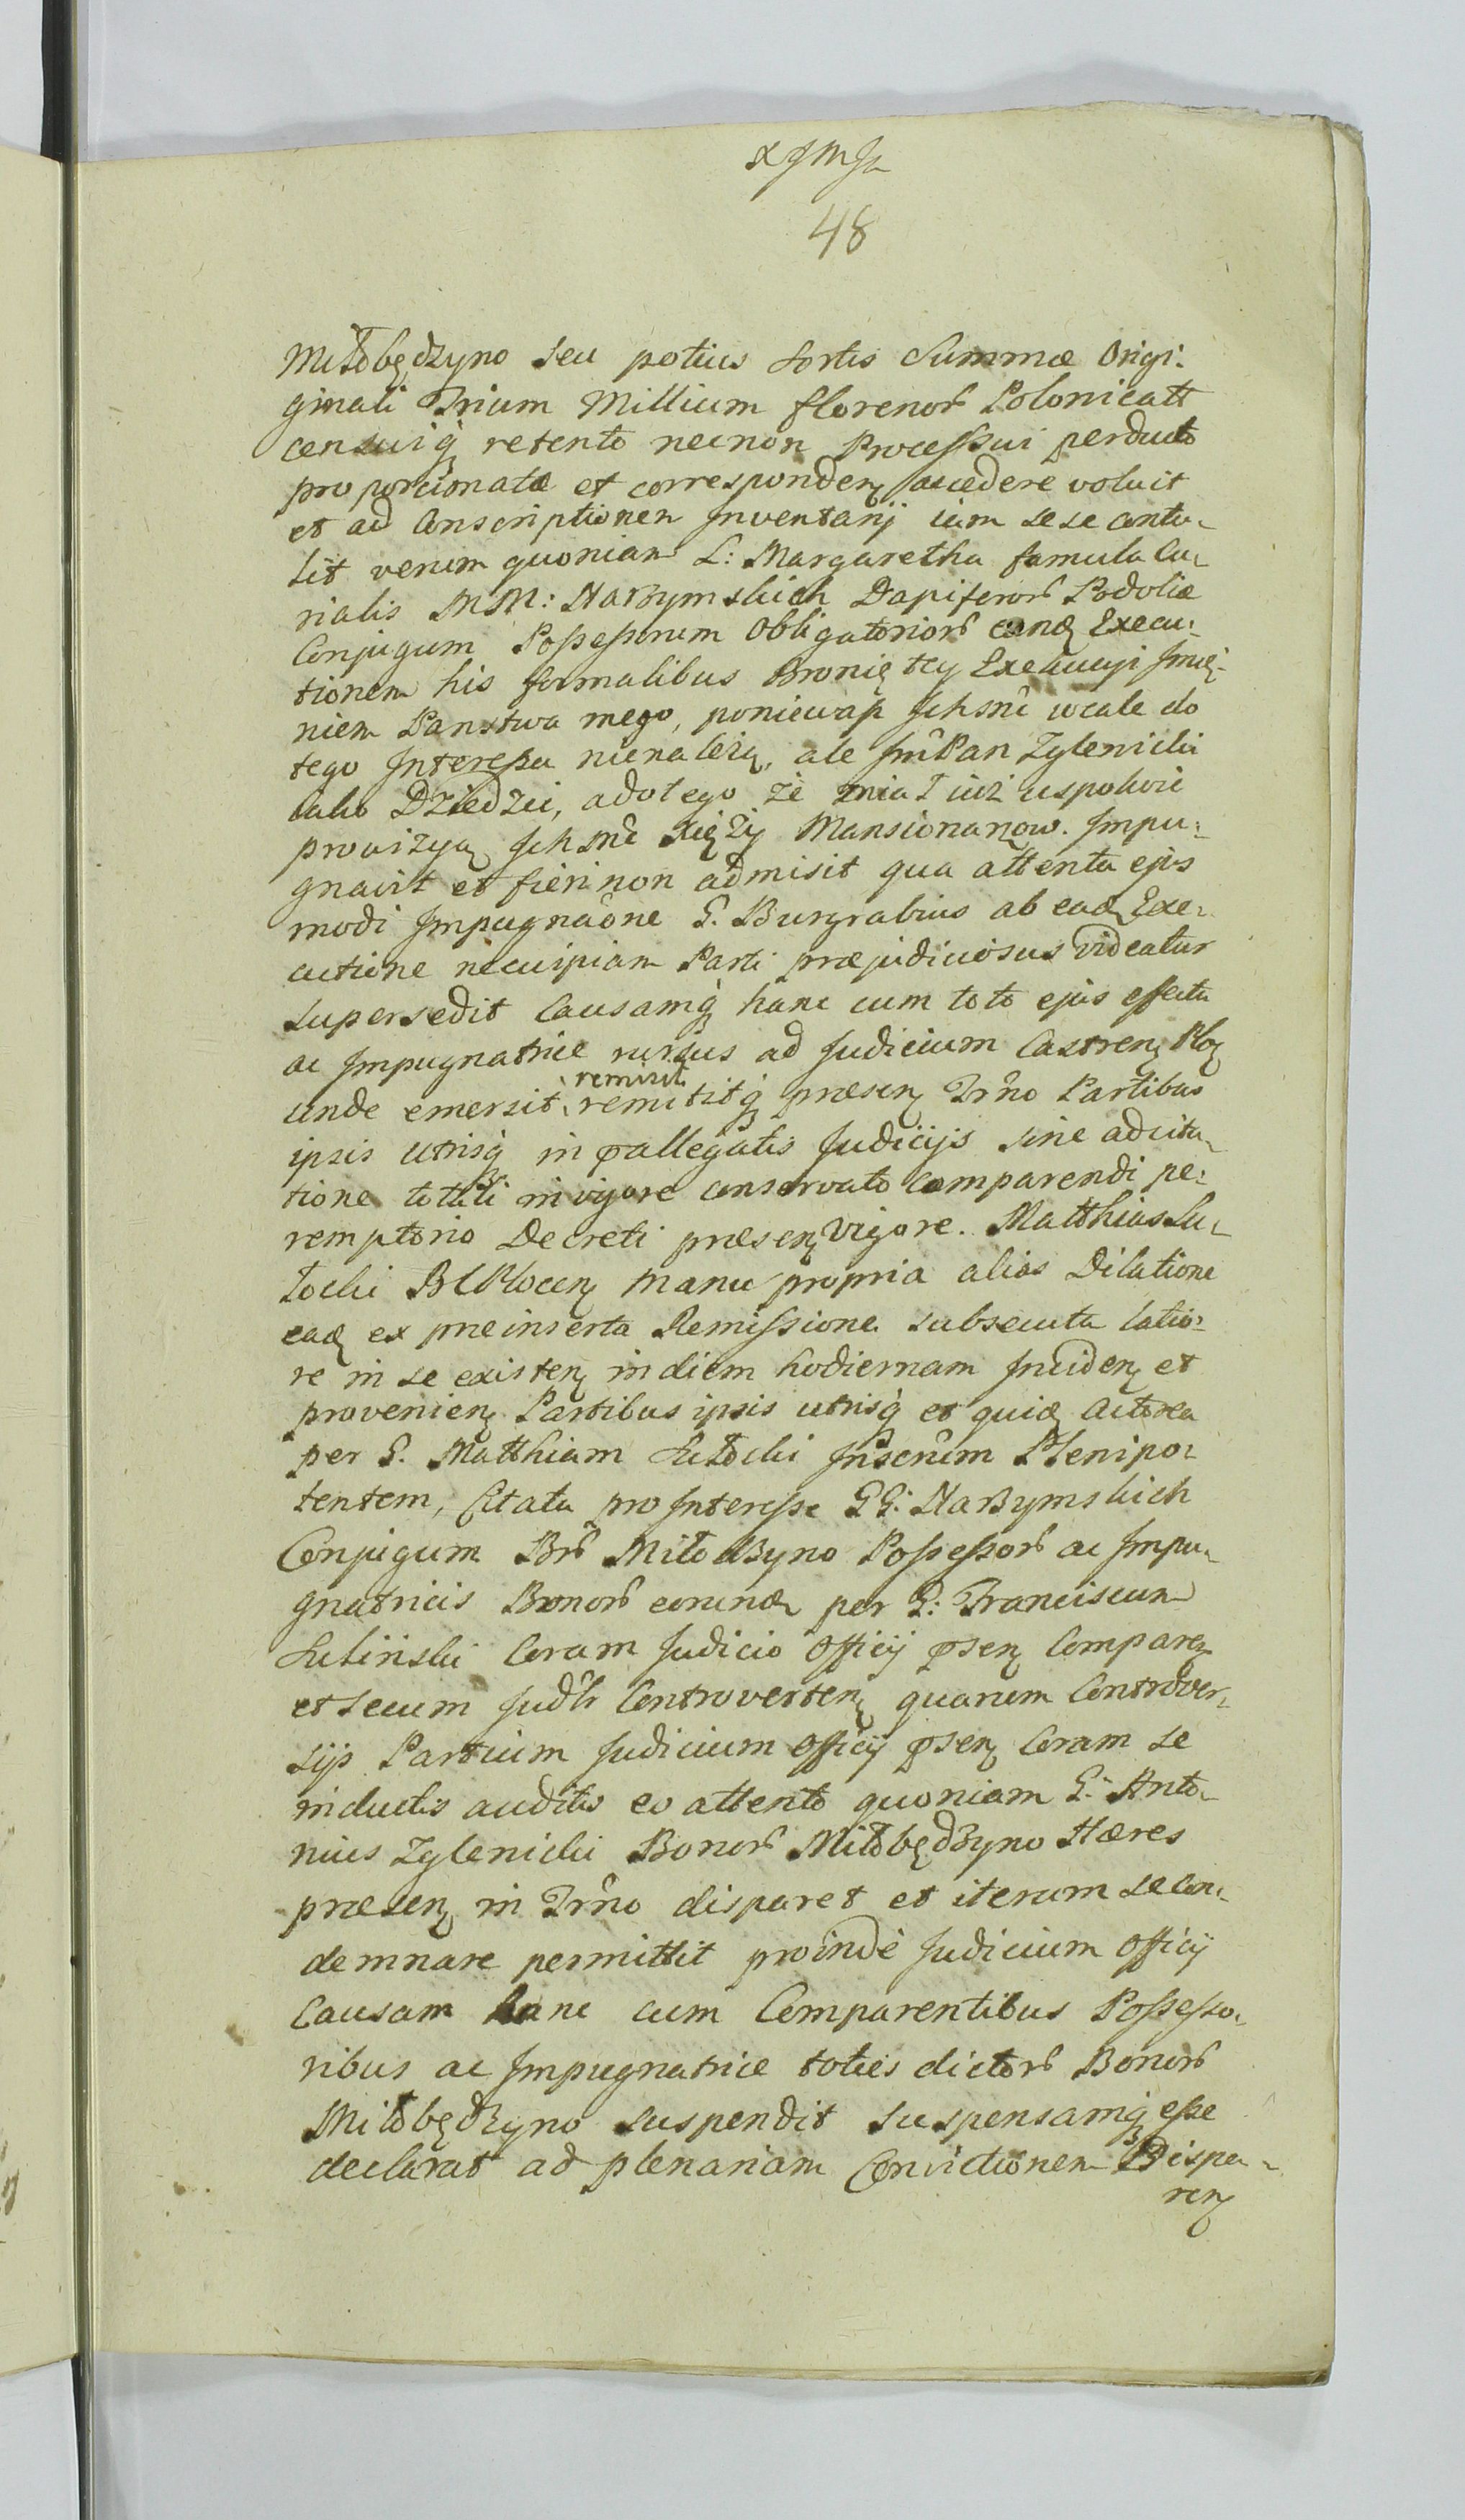 48
Miłobędzyno seu potius sortis Summæ Origi:
ginali Trium Millium florenor Polonicatt
censuiq retento necnon Processui perducto
proporcionatæ et corresponden accedere voluit
et ad Conscriptionem Inventarij iam sese contu-
lit verum quoniam L: Margaretha famula Cu-
rialis MM: Narzymskich Dapiferor Podoliæ
Conjugum Possessorum Obligatorior eand Execu:
tionem his formalibus Bronię tey Exekucyi Imie-
niem Panstwa mego, poniewasz Ichmc wcale do
tego Interessu nienależą, ale Jm Pan Zglenicki
iako Dziedzic, adotego że miał iuż uspokoic
prowizyą Ichmc Xięży Mansionarzow. Impu:
gnavit et fieri non admisit qua attenta ejus
modi Impugnaone G. Burgrabius ab ead Exe-
cutione necuipiam Parti præjudiciosus videatur
supersedit Causamq hanc cum toto ejus effectu
ac Impugnatrice rursus ad Judicium Castren Ploc
unde emersit, remisit remittitq præsen Trno Partibus
ipsis utrisq in præallegatis Judicijs sine adcita-
tione totali in vigore conservato comparendi pe:
remptorio Decreti præsen vigore. Matthias Lu-
tocki BC Plocen manu propria alias Dilatione
ead ex præinserta Remissione subsecuta latio-
re in se existen in diem hodiernam Inciden et
provenien Partibus ipsis utrisq et quid Actorea
per G. Matthiam Lutocki Inscrum Plenipo-
tentem, Citata pro Interesse GG: Narzymskich
Conjugum Bnr Miłobedzyno Possessor ac Impu-
gnatricis Bonor eorund per G: Franciscum
Lutinski Coram Judicio Officij præsen Comparen
et secum Judlr Controverten quarum Controver-
sijs Partium Judicium Officij præsen Coram se
inductis auditis eo attento quoniam G. Anto-
nius Zglenicki Bonor Miłobędzyno Hæres
præsen in Trno disparet et iterum se con-
demnare permittit proinde Judicium Officij
Causam hanc cum Comparentibus Possesso-
ribus ac Impugnatrice toties dictor Bonor
Miłobędzyno suspendit suspensamq esse
declarat ad plenariam Convictionem Dispa-
ren